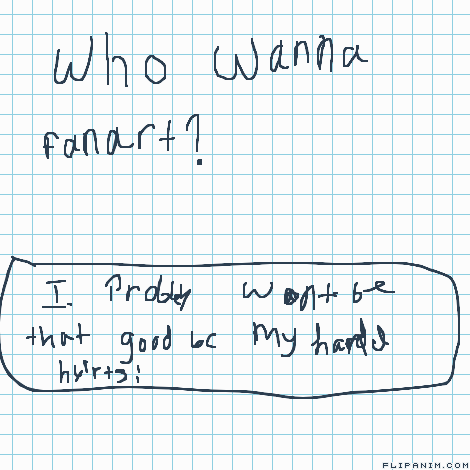 Who wanna
fanart?
I Probly wont be
that good bc my hande
hurts!
FLIPANIM.COM